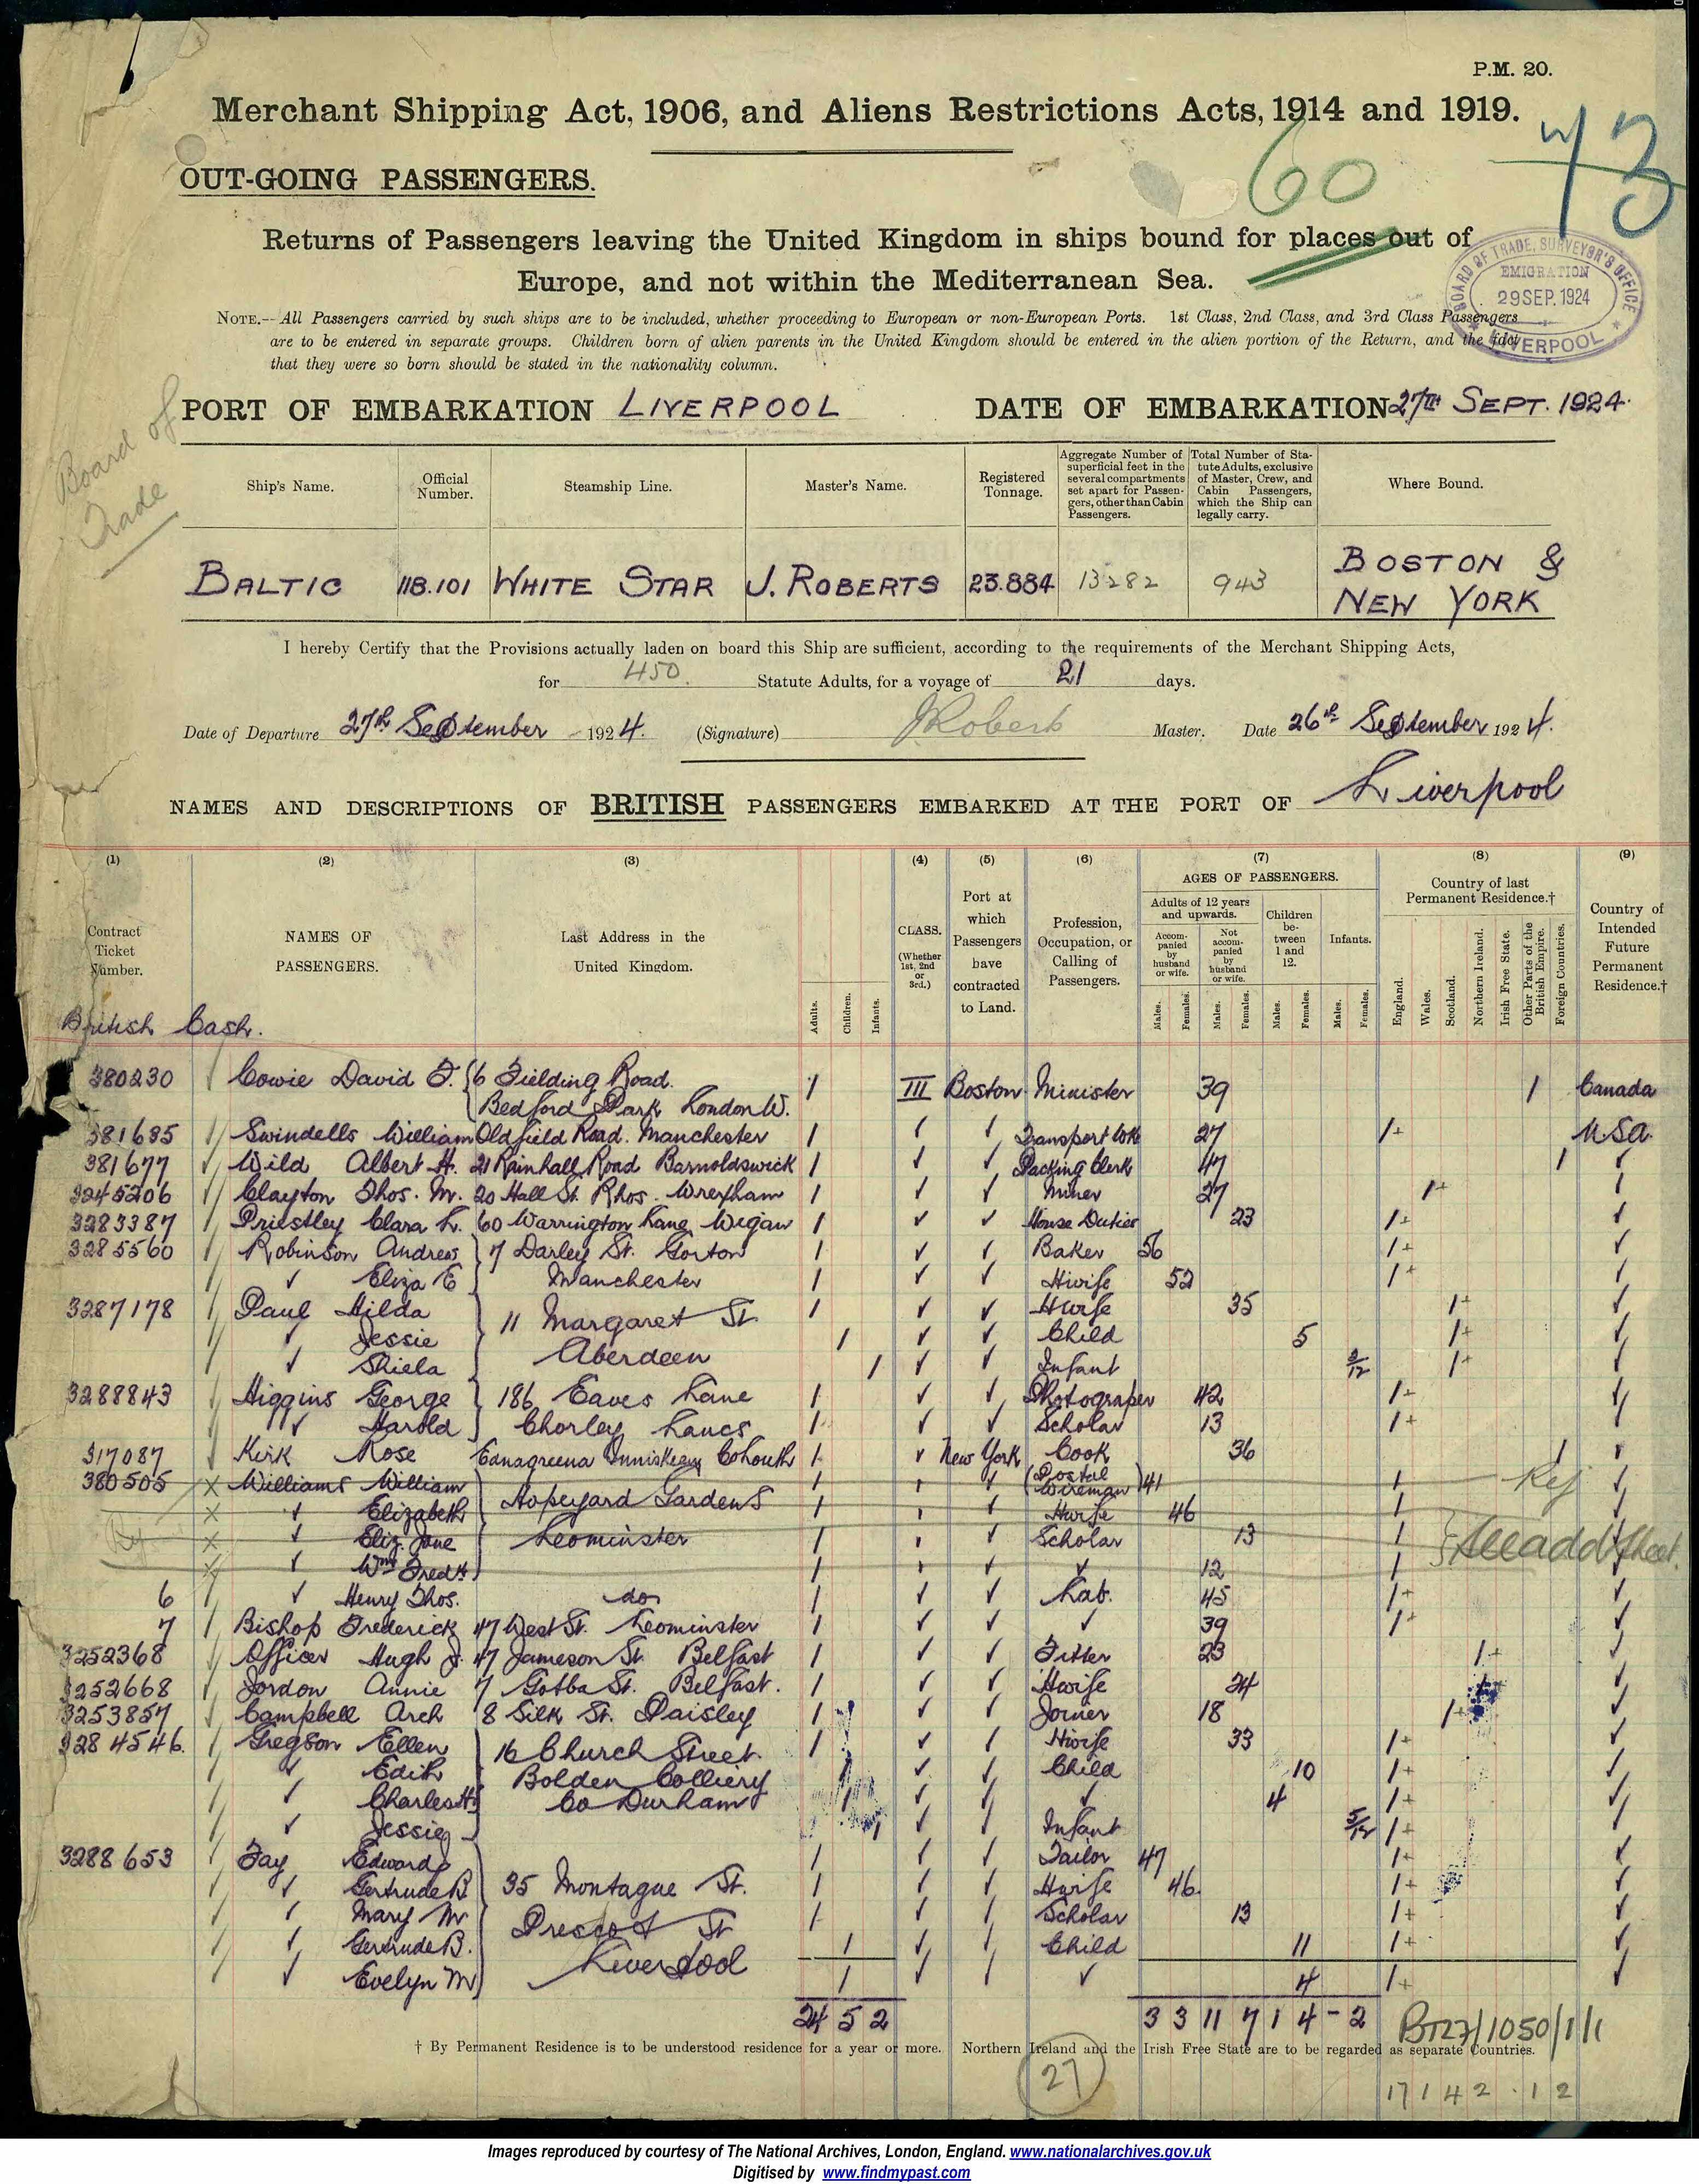 P.M. 20.
Merchant Shipping Act, 1906, and Aliens Restrictions Acts, 1914 and 1919.
60
43
OUT-GOING PASSENGERS.
Returns of Passengers leaving the United Kingdom in ships bound for places out of
Europe, and not within the Mediterranean Sea.
BOARD OF TRADE, SURVEYOR'S OFFICE
EMIGRATION
29 SEP. 1924
LIVERPOOL
NOTE.-- All Passengers carried by such ships are to be included, whether proceeding to European or non-European Ports. 1st Class, 2nd Class, and 3rd Class Passengers
are to be entered in separate groups. Children born of alien parents in the United Kingdom should be entered in the alien portion of the Return, and the fact
that they were so born should be stated in the nationality column.
Board of
Trade
PORT OF EMBARKATION LIVERPOOL DATE OF EMBARKATION 27TH SEPT. 1924.
Ship's Name. Official Number. Steamship Line. Master's Name. Registered Tonnage. Aggregate Number of superficial feet in the several compartments set apart for Passengers, other than Cabin Passengers. Total Number of Statute Adults, exclusive of Master, Crew, and Cabin Passengers, which the Ship can legally carry. Where Bound.
BALTIC 118.101 WHITE STAR J. ROBERTS 23.884 13282 943 BOSTON &
NEW YORK
I hereby Certify that the Provisions actually laden on board this Ship are sufficient, according to the requirements of the Merchant Shipping Acts,
for 450. Statute Adults, for a voyage of 21 days.
Date of Departure 27th September 1924. (Signature) J Roberts Master. Date 26th September 1924.
NAMES AND DESCRIPTIONS OF BRITISH PASSENGERS EMBARKED AT THE PORT OF Liverpool
(1) (2) (3) (4) (5) (6) (7) (8) (9)
Contract Ticket Number. NAMES OF PASSENGERS. Last Address in the United Kingdom. Adults. Children. Infants. CLASS. (Whether 1st, 2nd or 3rd.) Port at which Passengers have contracted to Land. Profession, Occupation, or Calling of Passengers.
AGES OF PASSENGERS. Adults of 12 years and upwards. Accompanied by husband or wife. Not accompanied by husband or wife. Children between 1 and 12. Infants. Males. Females. Males. Females. Males. Females. Males. Females.
Country of last Permanent Residence.† England. Wales. Scotland. Northern Ireland. Irish Free State. Other Parts of the British Empire. Foreign Countries. Country of Intended Future Permanent Residence.†
British Cash.
380230 Cowie David F. 6 Fielding Road. 1 III Boston Minister 39 1 Canada
Bedford Park London W.
381635 Swindells William Oldfield Road. Manchester 1 ✓ ✓ 27 1+ USA.
381677 Wild Albert H. 21 Rainhall Road Barnoldswick 1 ✓ ✓ Packing Clerk 47 1 ✓
3245206 Clayton Thos. M. 20 Hall St. Rhos. Wrexham 1 ✓ ✓ Miner 27 1+ ✓
3283387 Priestley Clara L. 60 Warrington Lane Wigan 1 ✓ ✓ House Duties 23 1+ ✓
3285560 Robinson Andrew 7 Darley St. Gorton 1 ✓ ✓ Baker 56 1+ ✓
✓ Eliza E Manchester 1 ✓ ✓ Hwife 52 1+ ✓
3287178 Paul Hilda 11 Margaret St. 1 ✓ ✓ Hwife 35 1+ ✓
✓ Jessie Aberdeen 1 ✓ ✓ Child 5 1+ ✓
✓ Shiela 1 ✓ ✓ Infant 1+ ✓
3288843 Higgins George 186 Eaves Lane 1 ✓ ✓ Photograper 42 1+ ✓
✓ Harold Chorley Lancs 1 ✓ ✓ Scholar 13 1+ ✓
317087 Kirk Rose Inniskeen Co Louth 1 ✓ New York Cook 36 1 ✓
380505 × Williams William Hopeyard Gardens 1 ✓ (Postal Wireman) 41 1 Rej ✓
× ✓ Elizabeth Leominster 1 ✓ Hwife 46 1 ✓
Rej × ✓ Eliz. Jane 1 ✓ Scholar 13 1 See add Sheet
× ✓ Wm Fredk 1 ✓ ✓ 12 1
6 ✓ Henry Thos. do 1 ✓ ✓ Lab. 45 1+ ✓
7 Bishop Frederick 47 West St. Leominster 1 ✓ ✓ ✓ 39 1+ ✓
3252368 Officer Hugh J. 47 Jameson St. Belfast 1 ✓ ✓ Fitter 23 1+ ✓
3252668 Jordon Annie 7 Gotha St. Belfast. 1 ✓ ✓ Hwife 24 ✓
3253857 Campbell Arch 8 Silk St. Paisley 1 ✓ ✓ Joiner 18 1+ ✓
3284546. Gregson Ellen 16 Church Street. 1 ✓ ✓ Hwife 33 1+ ✓
✓ Edith Bolden Colliery 1 ✓ ✓ Child 10 1+ ✓
✓ Charles H Co Durham 1 ✓ ✓ ✓ 4 1+ ✓
✓ Jessie 1 ✓ ✓ Infant 5/12 1+ ✓
3288653 Fay Edward 35 Montague St. 1 ✓ ✓ Tailor 47 1+ ✓
✓ Gertrude B Prescot St 1 ✓ ✓ Hwife 46. 1+ ✓
✓ Mary M Liverpool 1 ✓ ✓ Scholar 13 1+ ✓
✓ Gertrude B. 1 ✓ ✓ Child 11 1+ ✓
✓ Evelyn M 1 ✓ ✓ ✓ 4 1+ ✓
24 5 2 3 3 11 7 1 4 - 2 BT27/1050/1/1
† By Permanent Residence is to be understood residence for a year or more. Northern Ireland and the Irish Free State are to be regarded as separate Countries.
27
17 1 4 2 . 1 2
Images reproduced by courtesy of The National Archives, London, England. www.nationalarchives.gov.uk
Digitised by www.findmypast.com